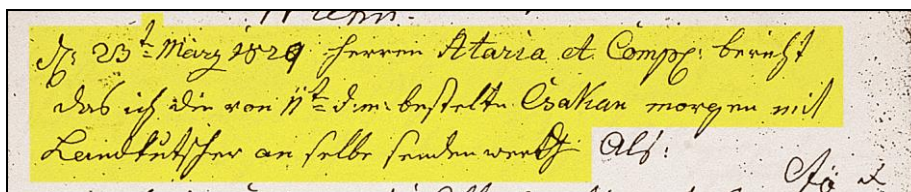 Wienn.
23t März 1829 Herren Ataria et Comp: bericht
das ich die von 11t d.m: bestelte Csakan morgen mit
Landkutscher an selbe senden werde Als: